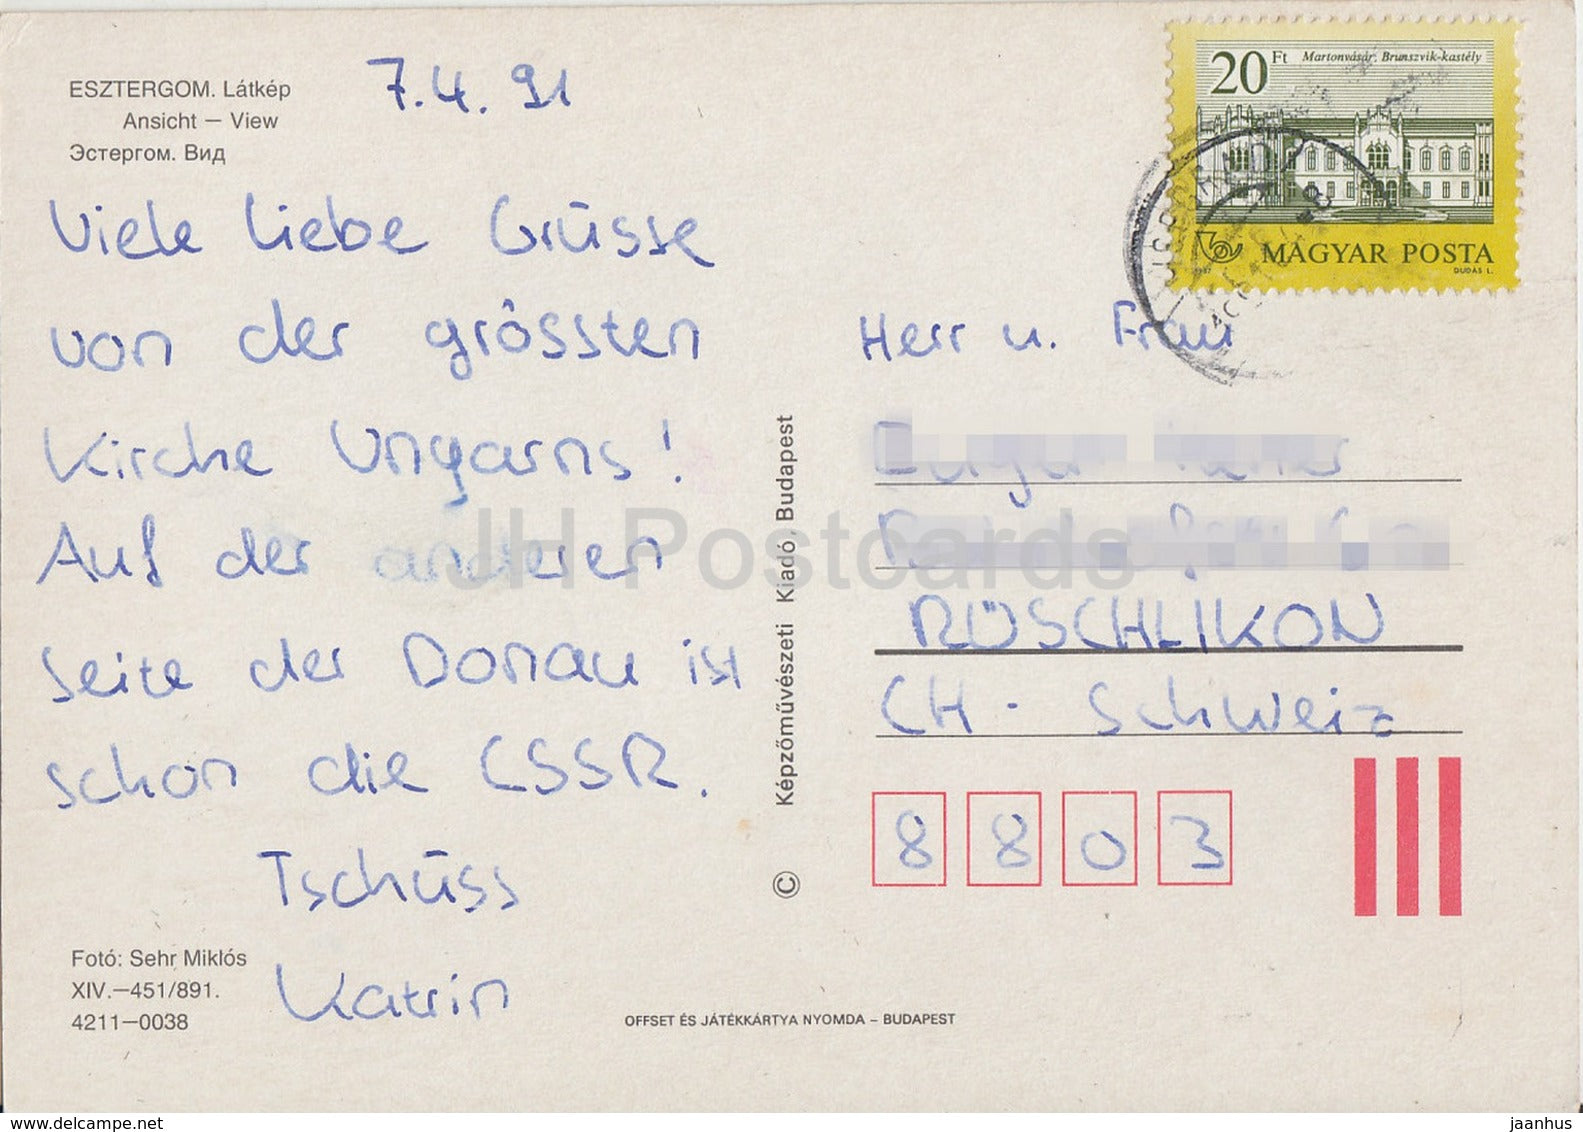 ESZTERGOM. Látkép
Ansicht – View
Эстергом. Вид
7.4.91
Viele liebe Grüsse
von der grössten
Kirche Ungarns!
Auf der anderen
Seite der Donau ist
schon die CSSR.
Tschüss
Katrin
Fotó: Sehr Miklós
XIV.–451/891.
4211–0038
© Képzőművészeti Kiadó, Budapest
OFFSET ÉS JÁTÉKKÁRTYA NYOMDA – BUDAPEST
20 Ft Martonvásár, Brunszvik-kastély
MAGYAR POSTA
DUDÁS L.
Herr u. Frau
RÜSCHLIKON
CH - Schweiz
8803
JH Postcards
delcampe.net
jaanhus